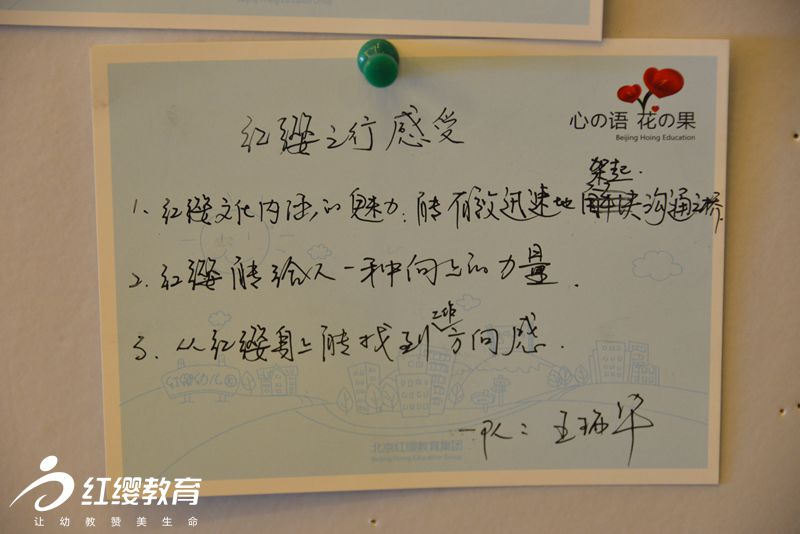 心の语 花の果
Beijing Hoing Education
红缨之行感受
1. 红缨文化内涵的魅力:能有效迅速地架起沟通之桥.
2. 红缨能给人一种向上的力量.
3. 从红缨身上能找到工作方向感.
一队:王
红缨幼儿园
北京红缨教育集团
Beijing Hoing Education Group
红缨教育
让幼教赞美生命